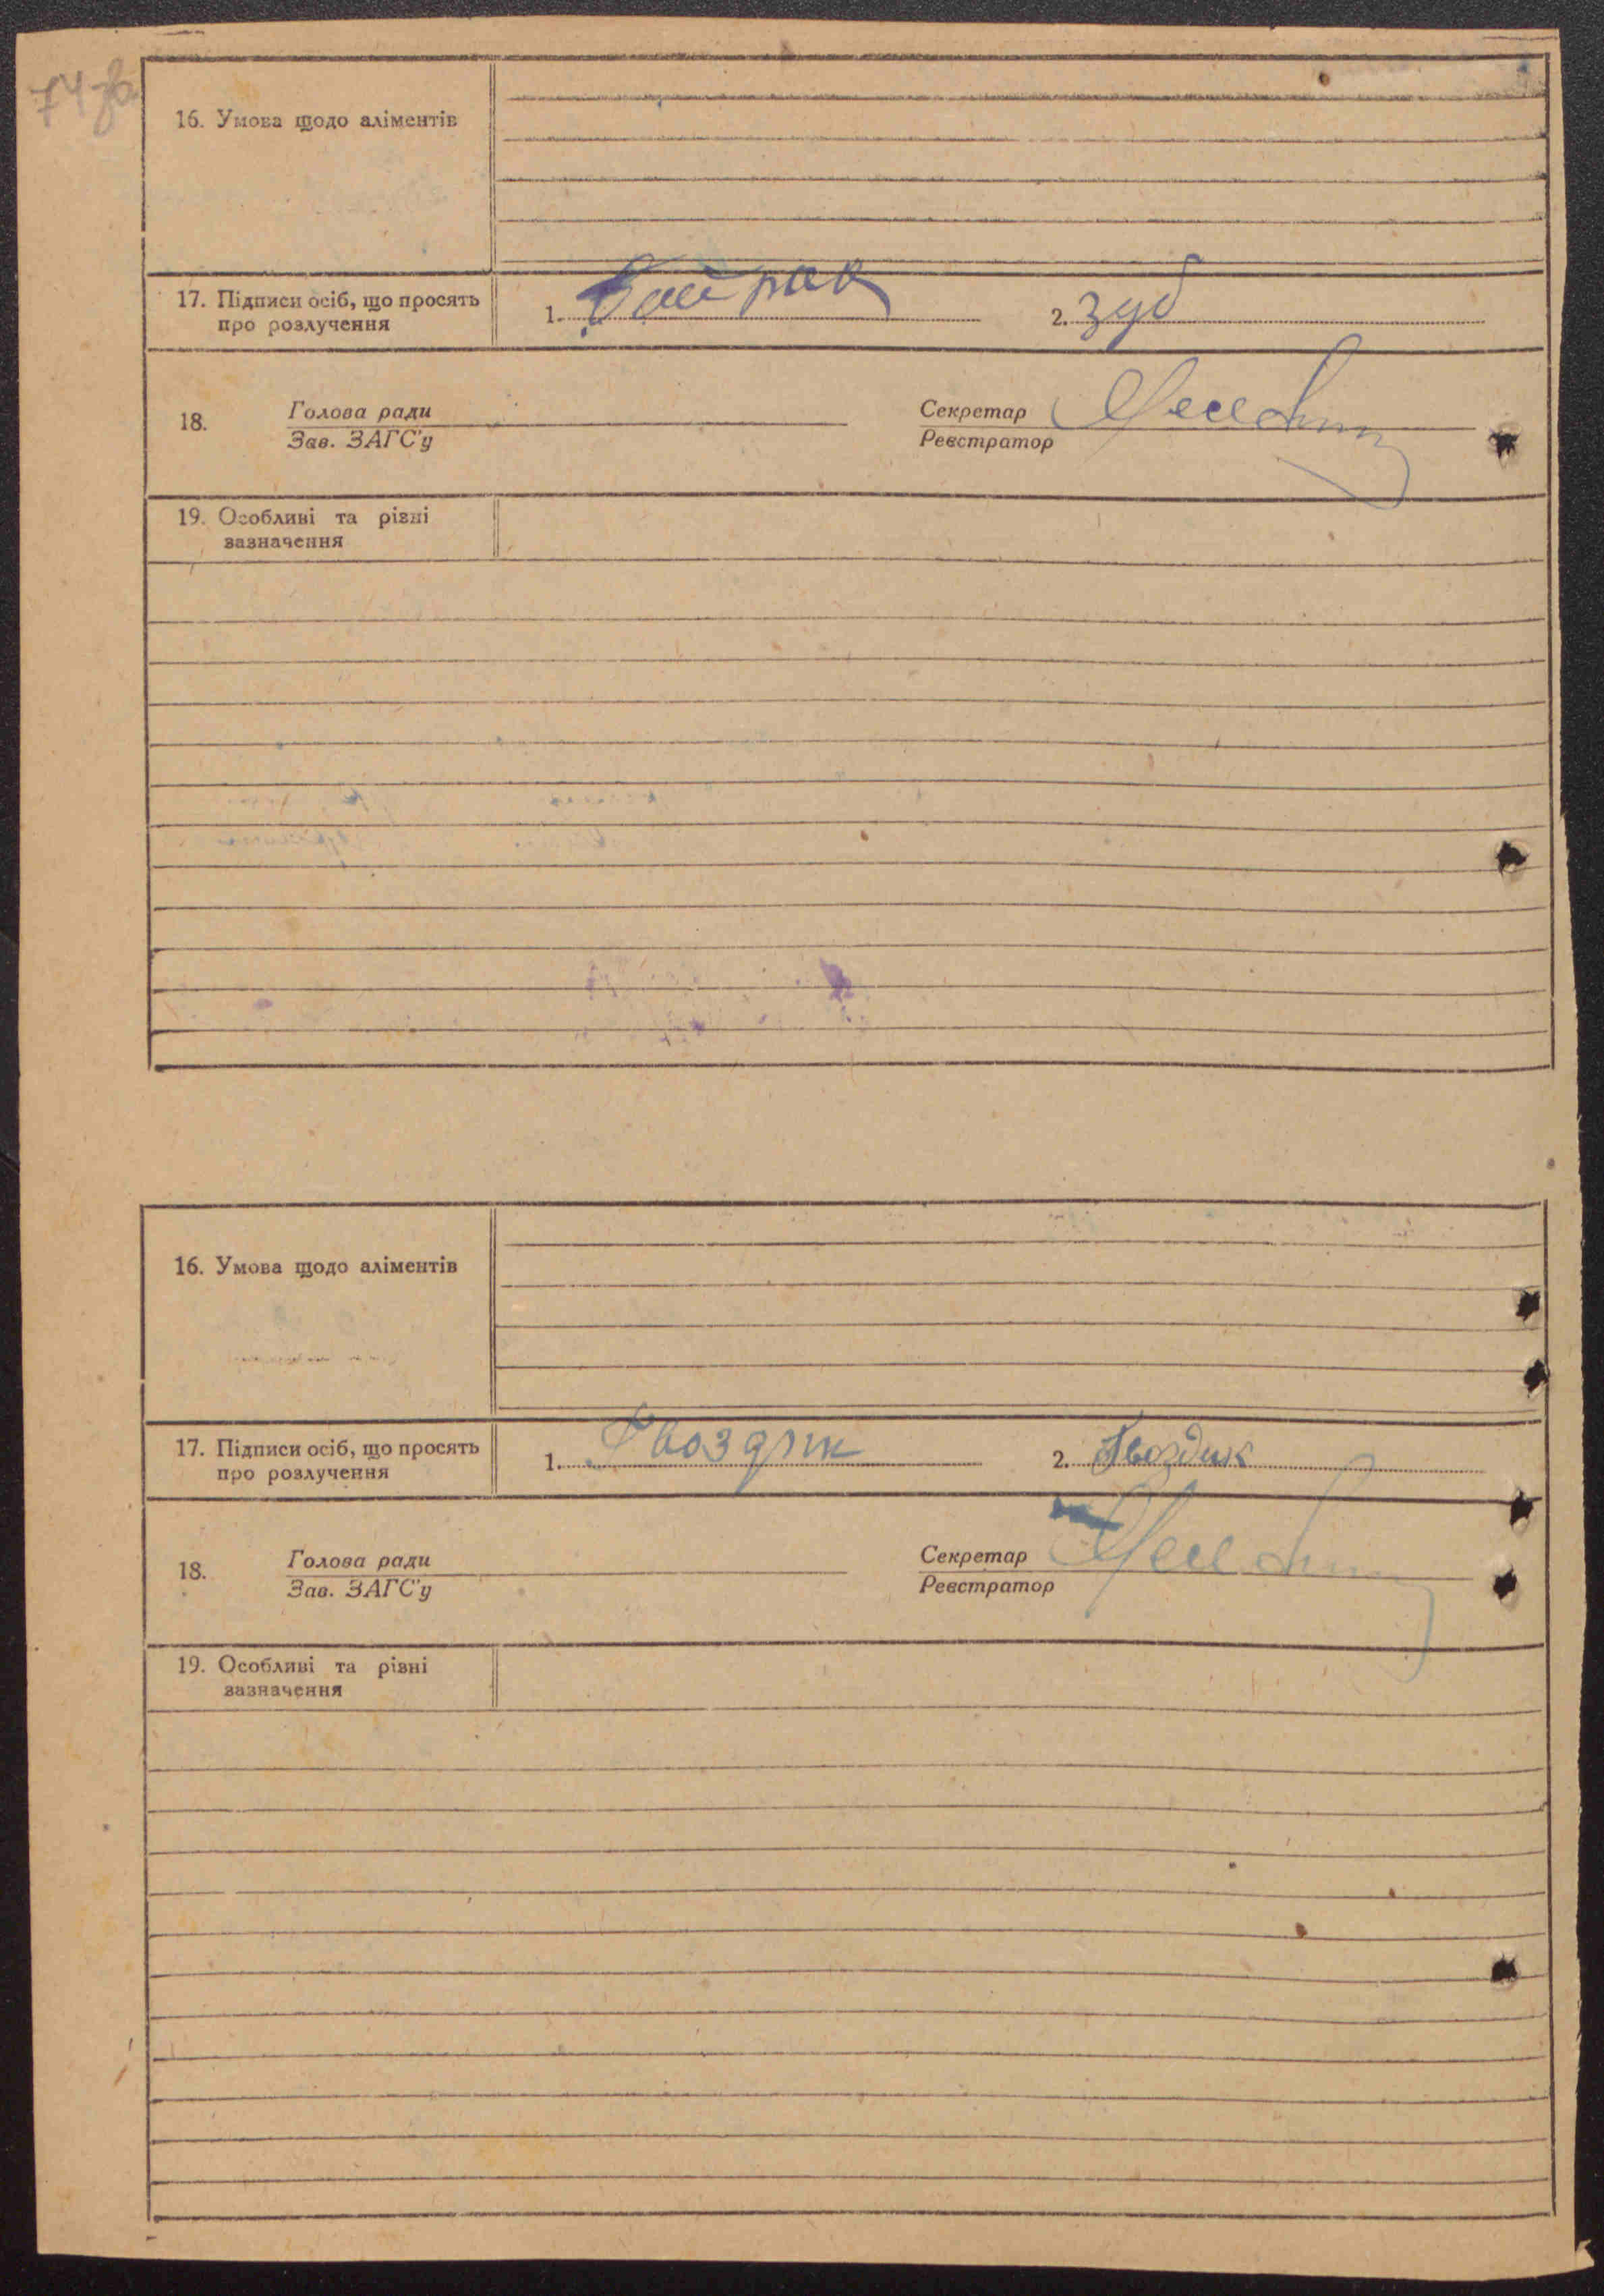 74 зв.
16. Умова щодо аліментів
17. Підписи осіб, що просять
про розлучення
1. Байрак 2. Зуб
18. Голова ради
Зав. ЗАГС'у
Секретар
Реєстратор
19. Особливі та різні
зазначення
16. Умова щодо аліментів
17. Підписи осіб, що просять
про розлучення
1. Гвоздик 2. Гвоздик
18. Голова ради
Зав. ЗАГС'у
Секретар
Реєстратор
19. Особливі та різні
зазначення